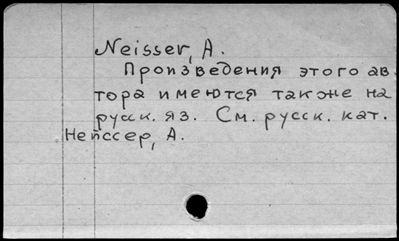 Neisser, A.
Произведения этого ав-
тора имеются также на
русск. яз. См. русск. кат.
Нейссер, А.